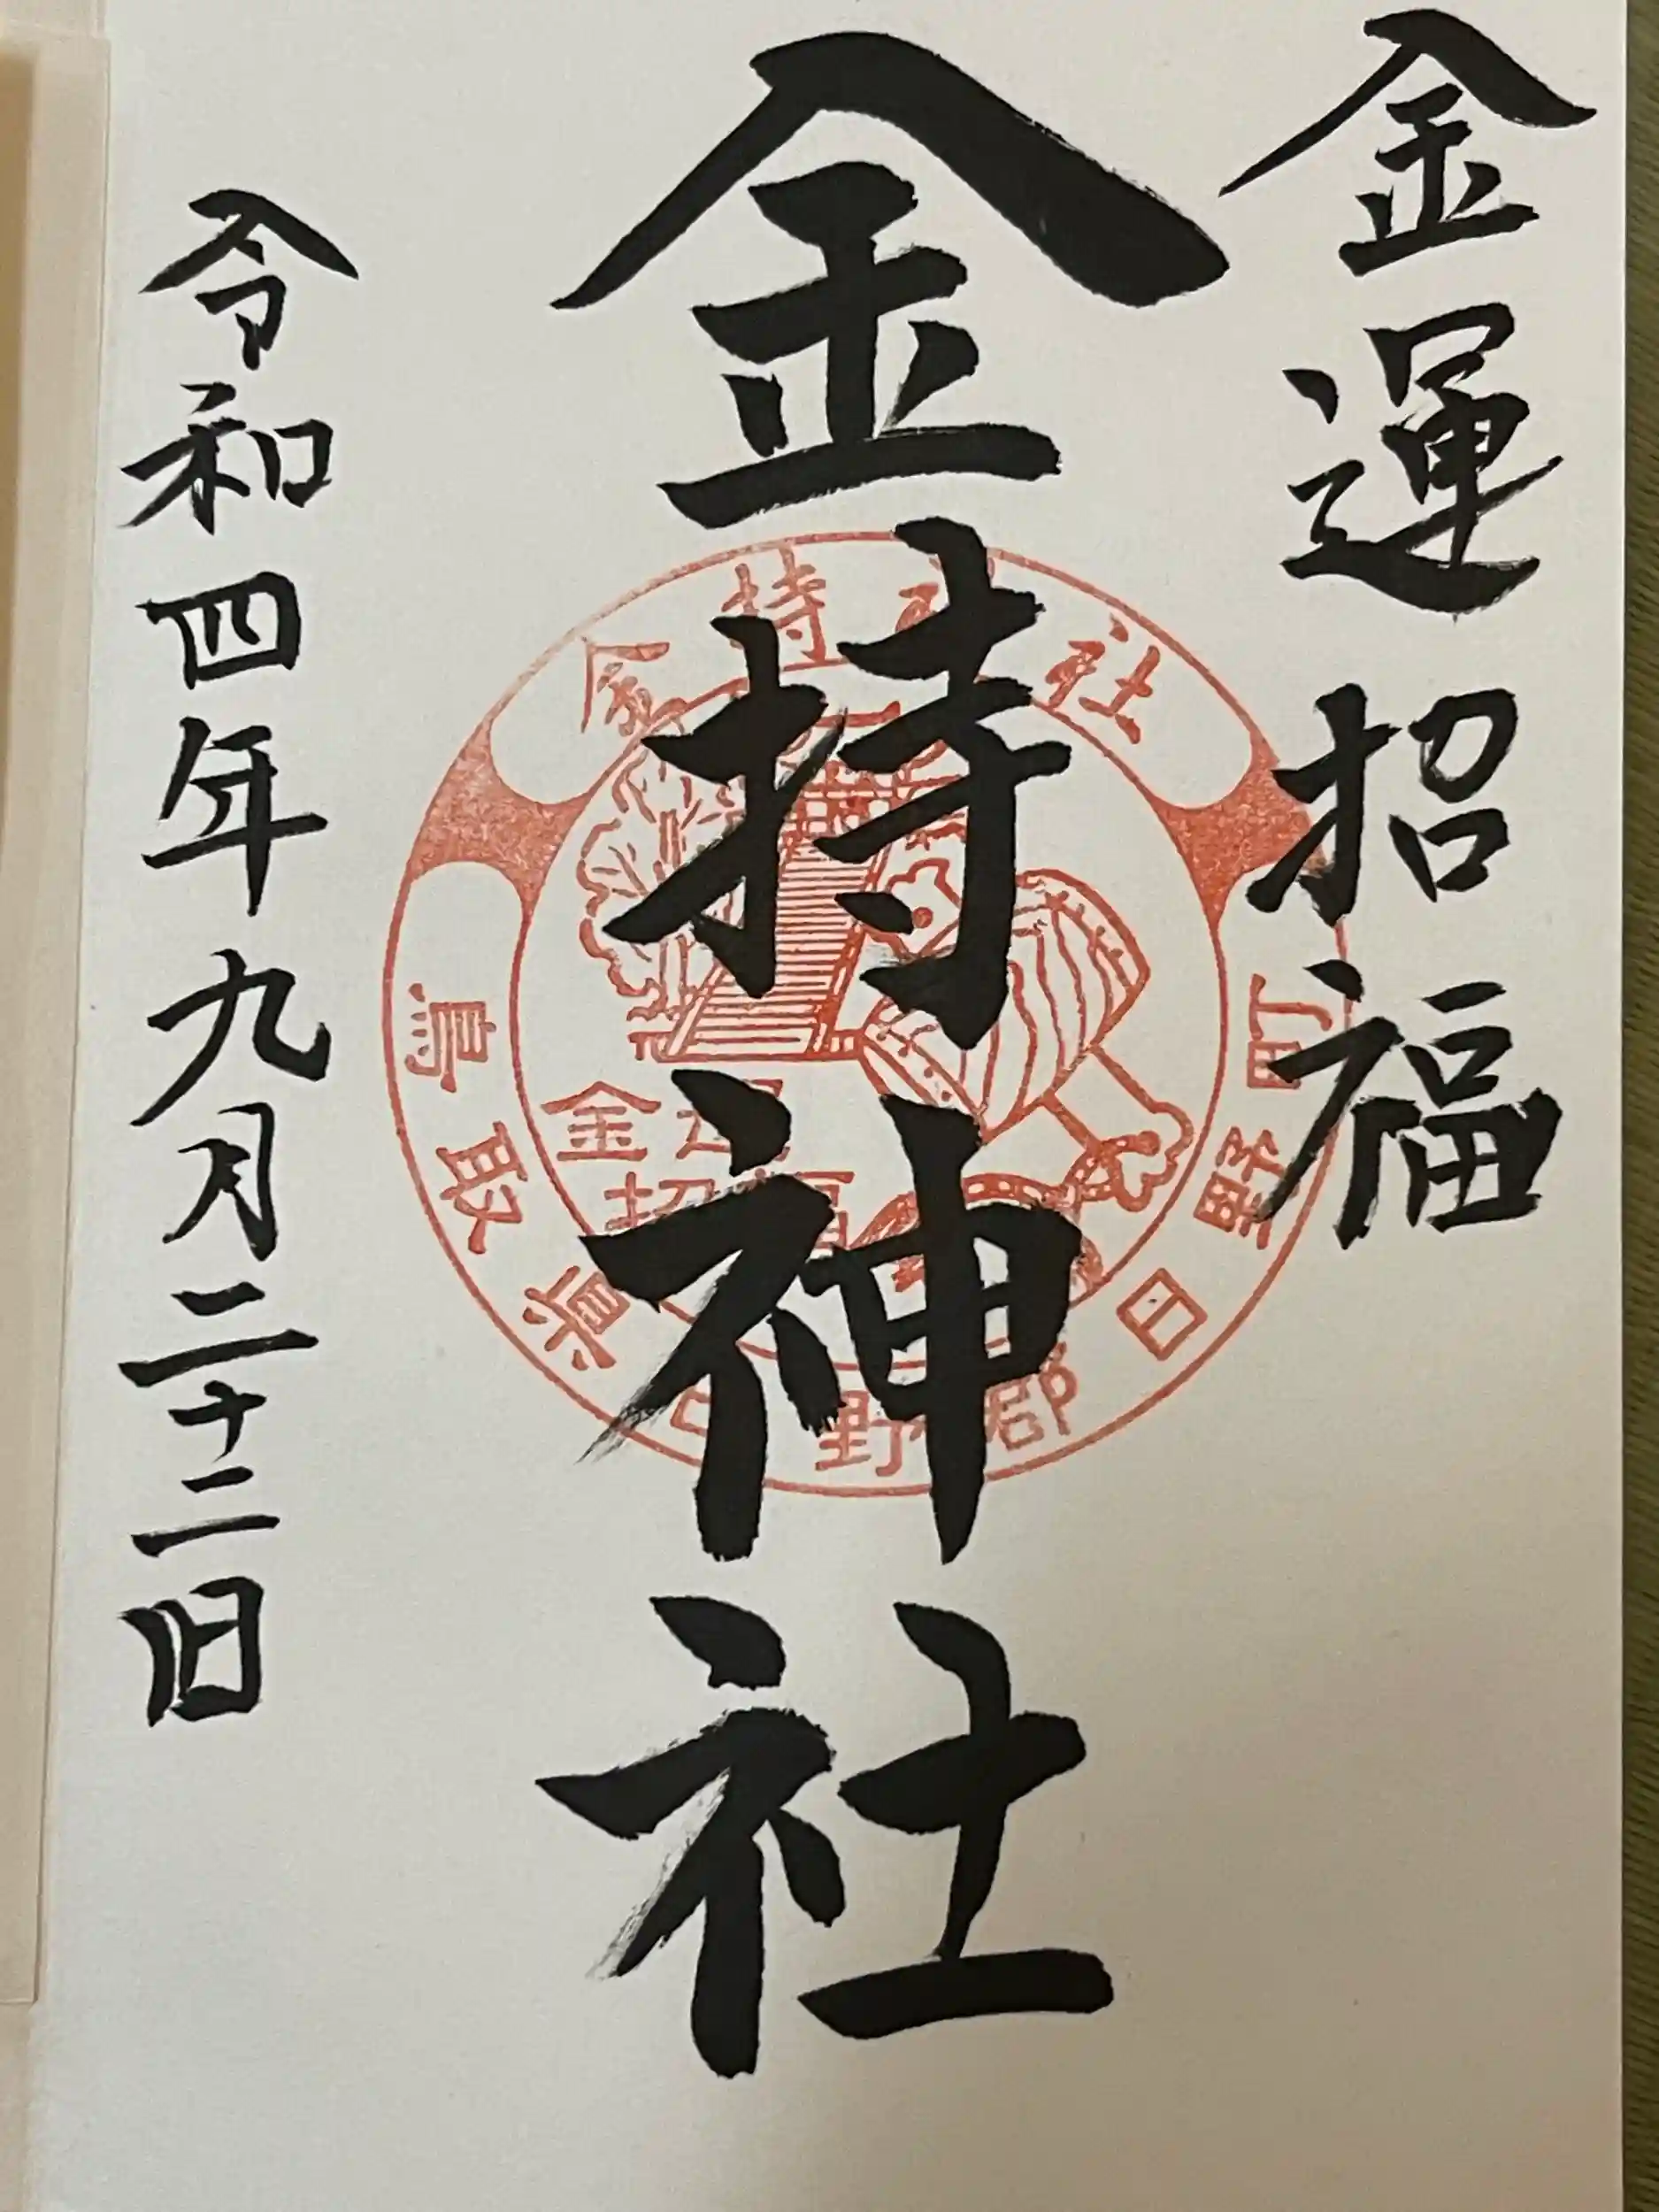 金運招福
金持神社
令和四年九月二十二日
金持神社
鳥取県日野郡日野町
金運
招福